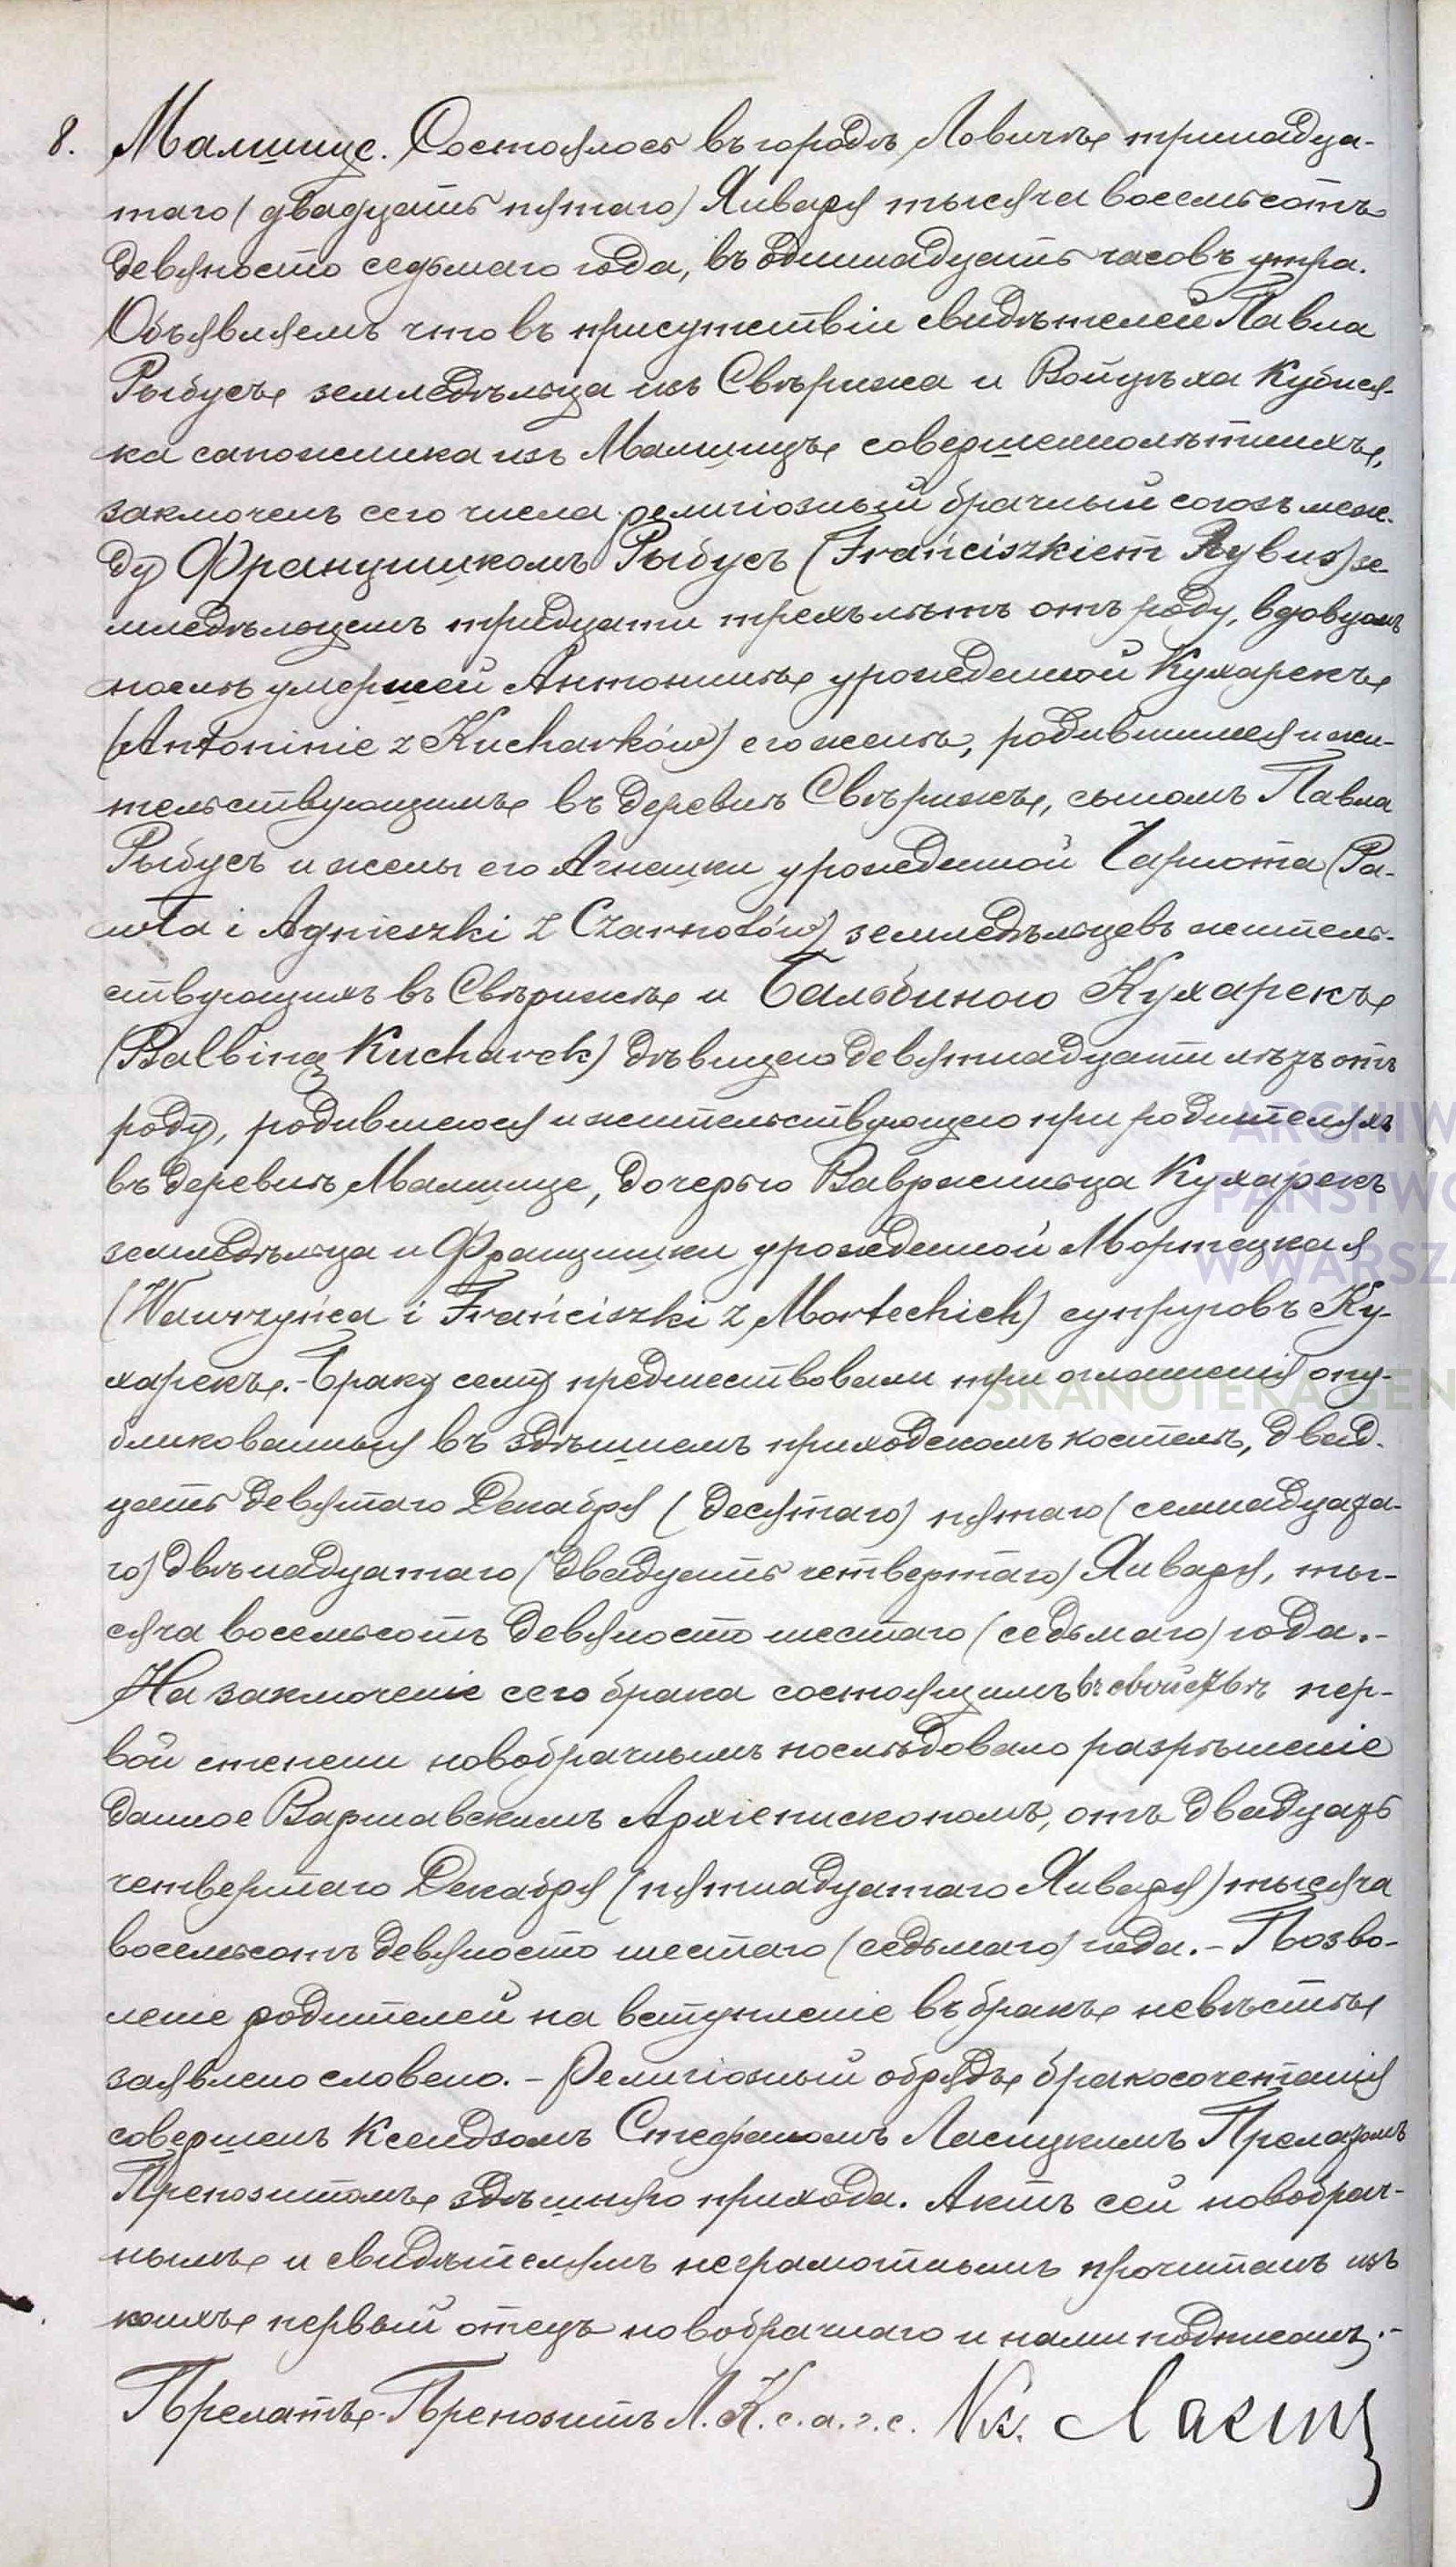 8. Малшице. Состоялось въ городѣ Ловичѣ тринадца-
таго (двадцать пятаго) Января тысяча восемьсотъ
девяносто седьмаго года, въ одиннадцать часовъ утра.
Объявляемъ что въ присутствіи свидѣтелей Павла
Рыбусъ земледѣльца изъ Свѣрижа и Войцѣха Кубися-
ка сапожника изъ Малшицъ совершеннолѣтнихъ,
заключенъ сего числа религіозный брачный союзъ меж-
ду Францишкомъ Рыбусъ (Franciszkiem Rybus) зе-
мледѣльцемъ тридцати трехъ лѣтъ отъ роду, вдовцомъ
послѣ умершей Антонинѣ урожденной Кухарекъ
(Antoninie z Kucharków) его женѣ, родившимся и жи-
тельствующимъ въ деревнѣ Свѣрижѣ, сыномъ Павла
Рыбусъ и жены его Агнешки урожденной Чарнота (Pa-
wła i Agnieszki z Czarnotów) земледѣльцевъ житель-
ствующихъ въ Свѣрижѣ и Бальбиною Кухарекъ
(Balbiną Kucharek) дѣвицею девятнадцати лѣтъ отъ
роду, родившеюся и жительствующею при родителяхъ
въ деревнѣ Малшице, дочерью Вавржинца Кухарекъ
земледѣльца и Францишки урожденной Мортецкая
(Wawrzyńca i Franciszki z Mortechich) супруговъ Ку-
харекъ. - Браку сему предшествовали три оглашенія опу-
бликованныя въ здѣшнемъ приходскомъ костелѣ, двад-
цать девятаго Декабря (десятаго) пятаго (семнадцата-
го) двѣнадцатаго (двадцать четвертаго) Января, ты-
сяча восемьсотъ девяносто шестаго (седьмаго) года. -
На заключеніе сего брака состоящимъ въ свойствѣ пер-
вой степени новобрачнымъ послѣдовало разрѣшеніе
данное Варшавскимъ Архіепископомъ, отъ двадцать
четвертаго Декабря (пятнадцатаго Января) тысяча
восемьсотъ девяносто шестаго (седьмаго) года. - Позво-
леніе родителей на вступленіе въ бракъ невѣсты
заявлено словено. - Религіозный обрядъ бракосочетанія
совершенъ Ксендзомъ Стефаномъ Ласицкимъ Прелатомъ
Препозитомъ здѣшняго прихода. Актъ сей новобрач-
нымъ и свидѣтелямъ неграмотнымъ прочитанъ изъ
коихъ первый отецъ новобрачнаго и нами подписанъ. -
Прелатъ-Препозитъ Л. К. с. а. г. с. Кк. Ласиц
ARCHIW
PAŃSTWO
W WARSZA
SKANOTEKA.GEN